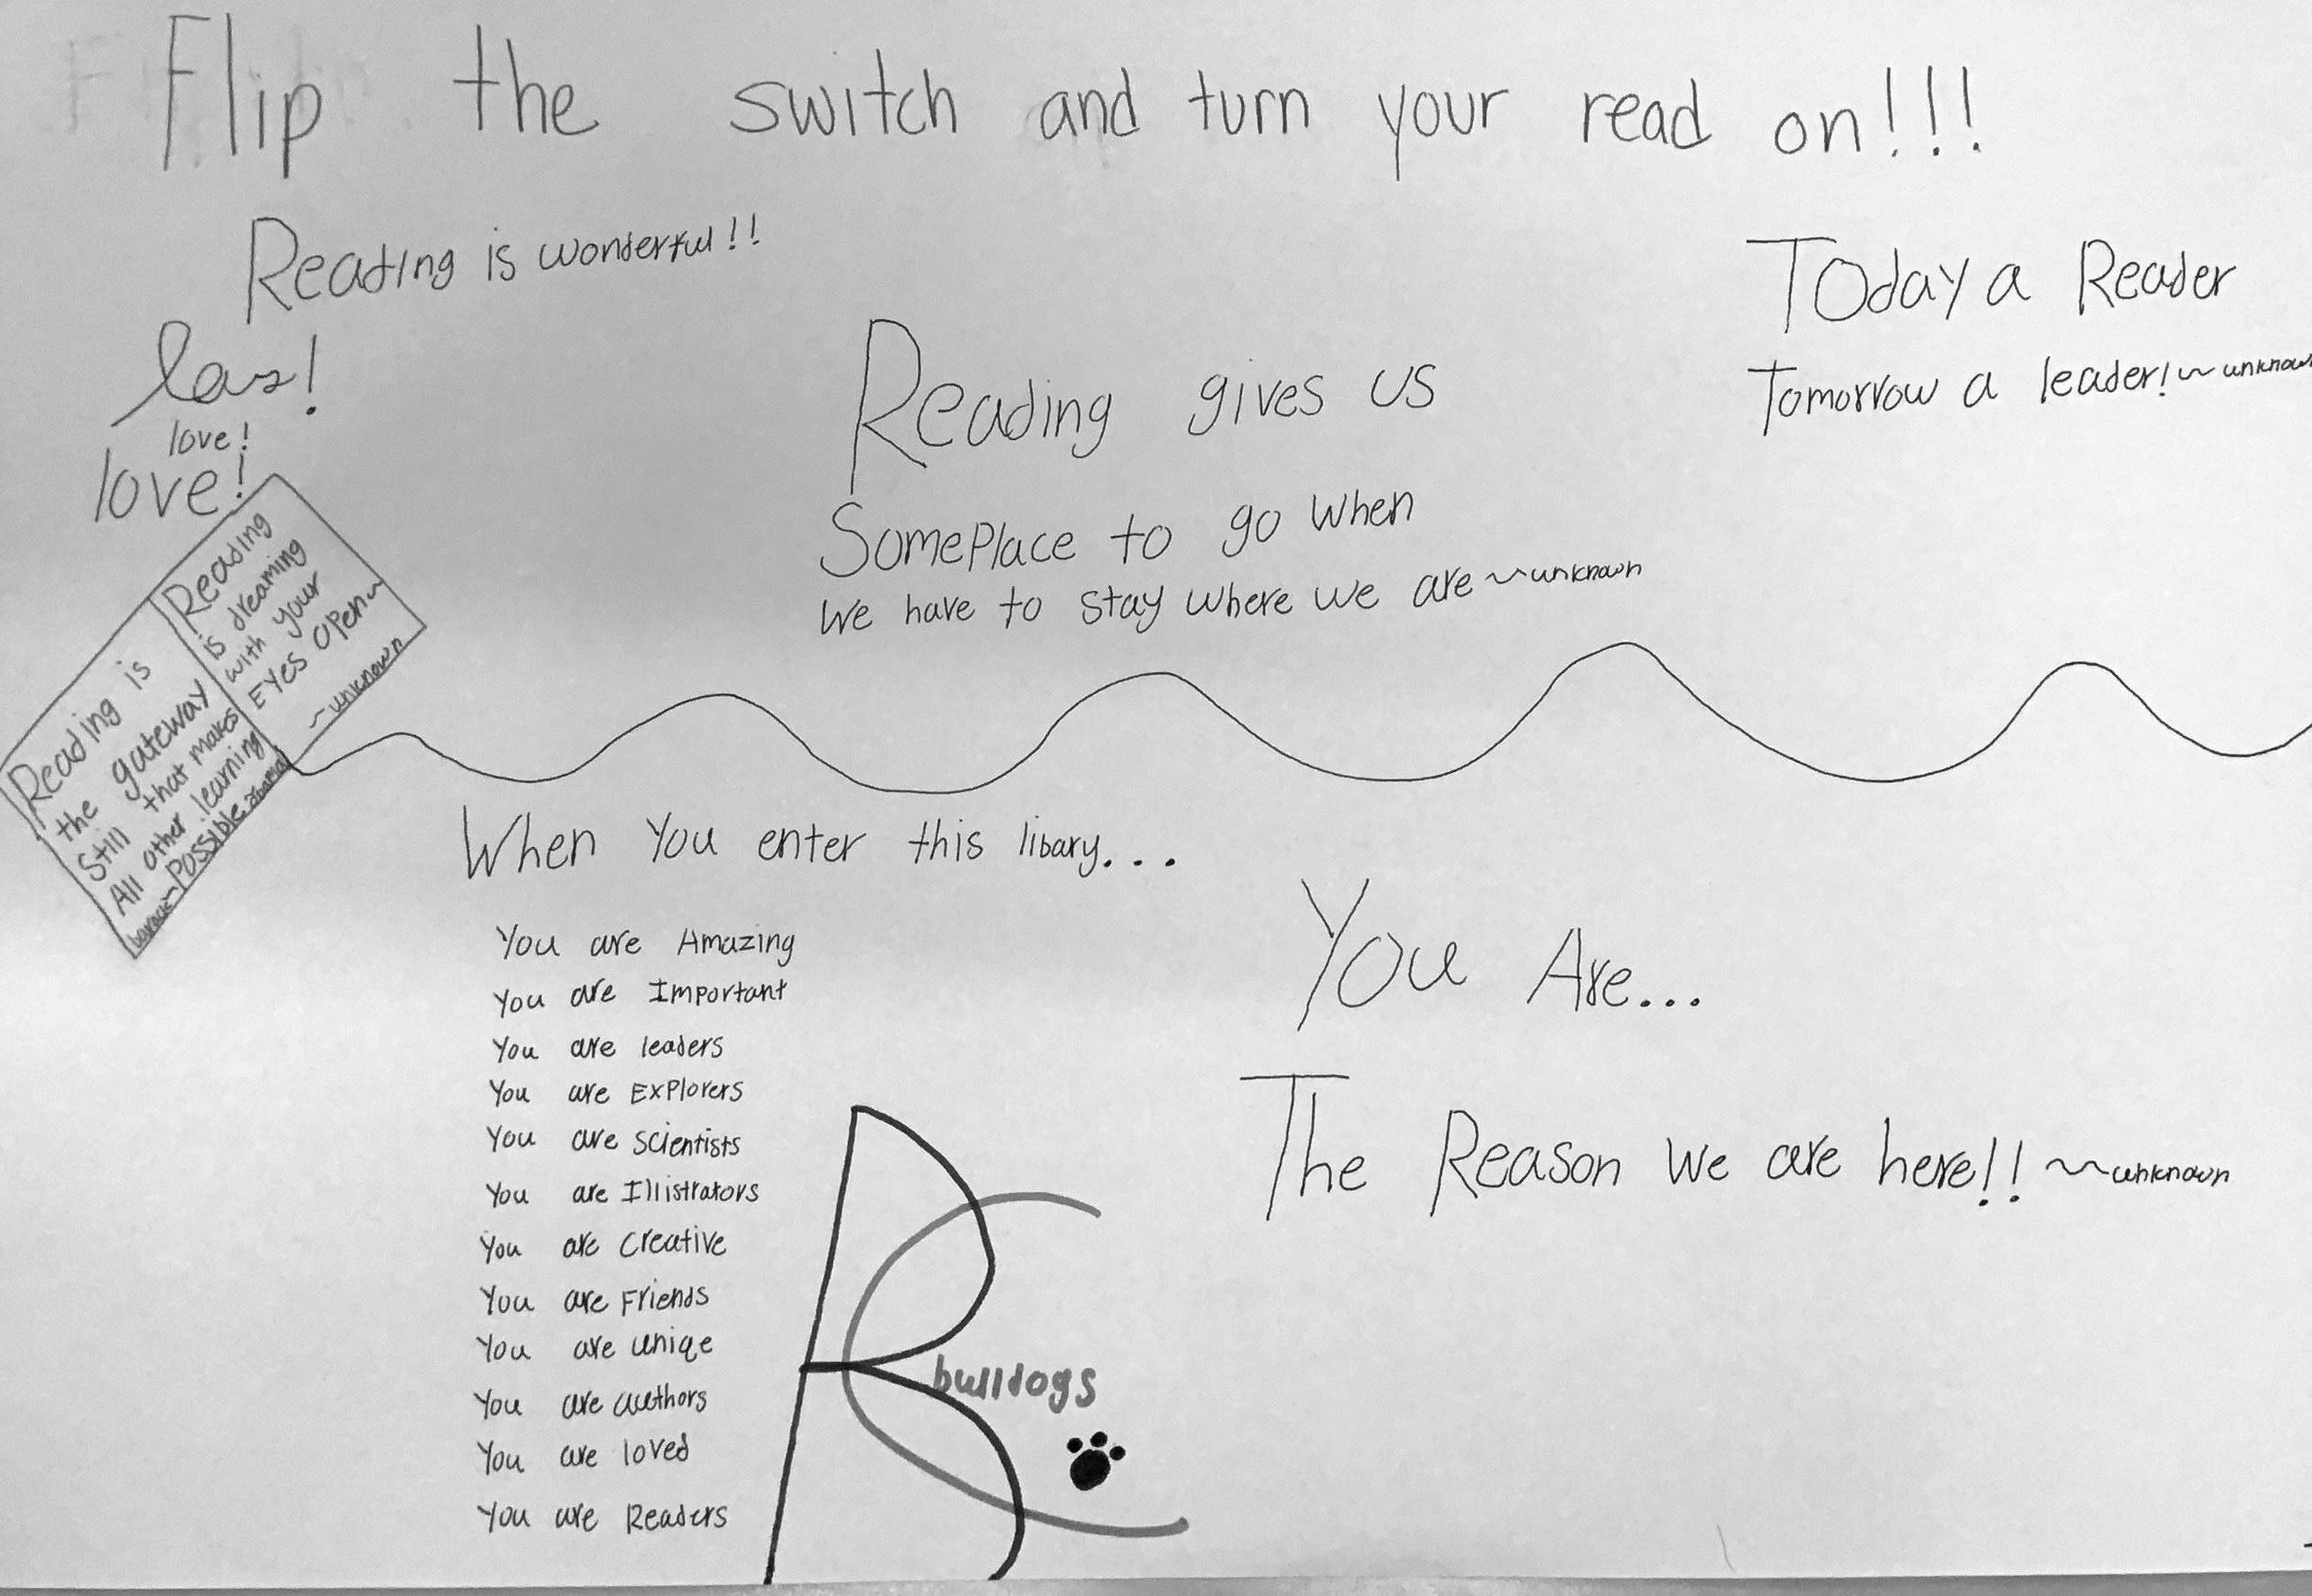 Flip the switch and turn your read on!!!
Reading is wonderful!!
love!
love!
Today a Reader
Tomorrow a leader!~unknown
Reading gives us
Someplace to go when
we have to stay where we are ~unknown
Reading
is dreaming
with your
Eyes open~
~unknown
Reading is
the gateway
Still that makes
All other learning
barack~Possible obama
When You enter this libary...
You are Amazing
You are Important
You are leaders
You are Explorers
You are scientists
You are Illistrators
You are creative
You are Friends
You are uniqe
You are authors
You are loved
You are Readers
You Are...
The Reason we are here!! ~~unknown
RC
bulldogs